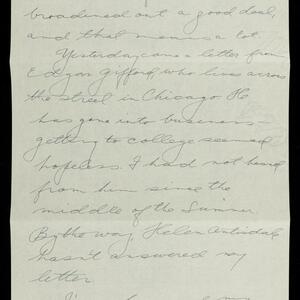 broadened out a good deal,
and that means a lot.
Yesterday came a letter from
Edgar Gifford, who lives across
the street in Chicago. He
has gone into business –
getting to college seemed
hopeless. I had not heard
from him since the
middle of the Summer.
By the way, Helen
hasn't answered my
letter.